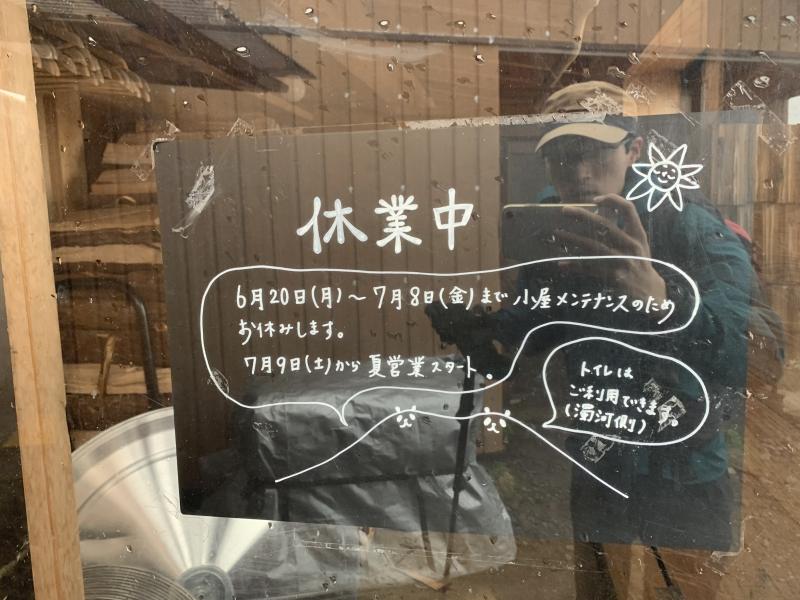 休業中
6月20日(月)～7月8日(金)まで 小屋メンテナンスのため
お休みします。
7月9日(土)から 夏営業スタート。
トイレは
ご利用できます。
(濁河側)